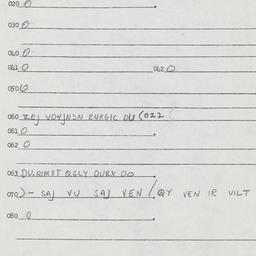 020 0
030 0
040 0
041 0 042 0
050 0
060 ZEJ VOYJNSN EURGIC DU (022
061 0
062 0
063 DU.RIMST QGLY DURX DO
070 )- SAJ VU SAJ VEN / QY VEN IR VILT
080 0